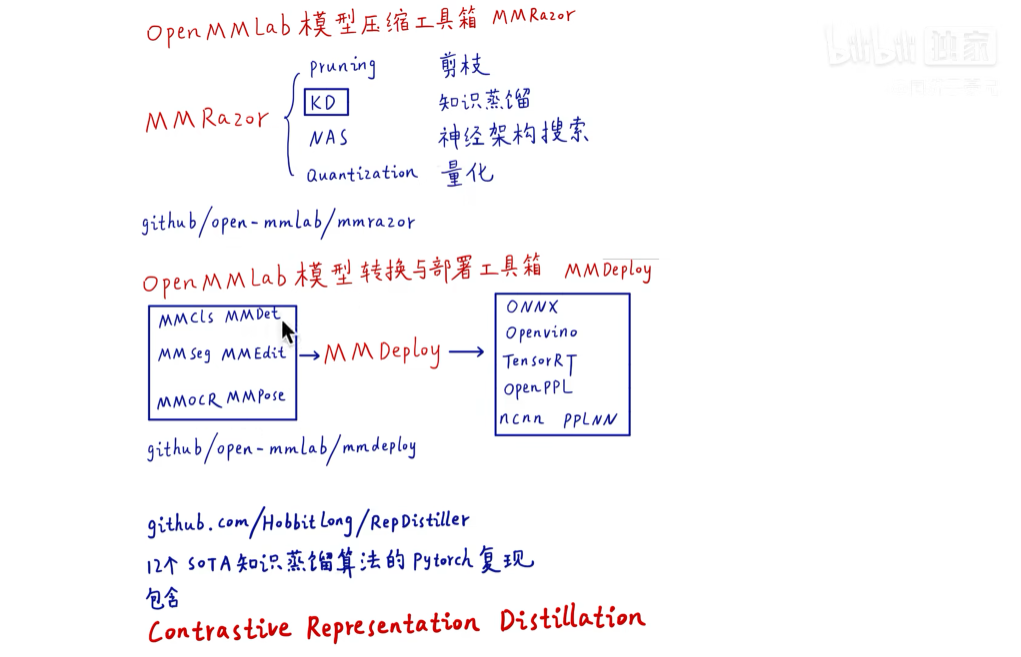 OpenMMLab模型压缩工具箱 MMRazor
bilibili 独家
Pruning 剪枝
MMRazor
KD 知识蒸馏
NAS 神经架构搜索
Quantization 量化
github/open-mmlab/mmrazor
OpenMMLab模型转换与部署工具箱 MMDeploy
MMCls MMDet
MMSeg MMEdit
MMOCR MMPose
→ MMDeploy →
ONNX
Openvino
TensorRT
OpenPPL
ncnn PPLNN
github/open-mmlab/mmdeploy
github.com/HobbitLong/RepDistiller
12个SOTA知识蒸馏算法的Pytorch复现
包含
Contrastive Representation Distillation